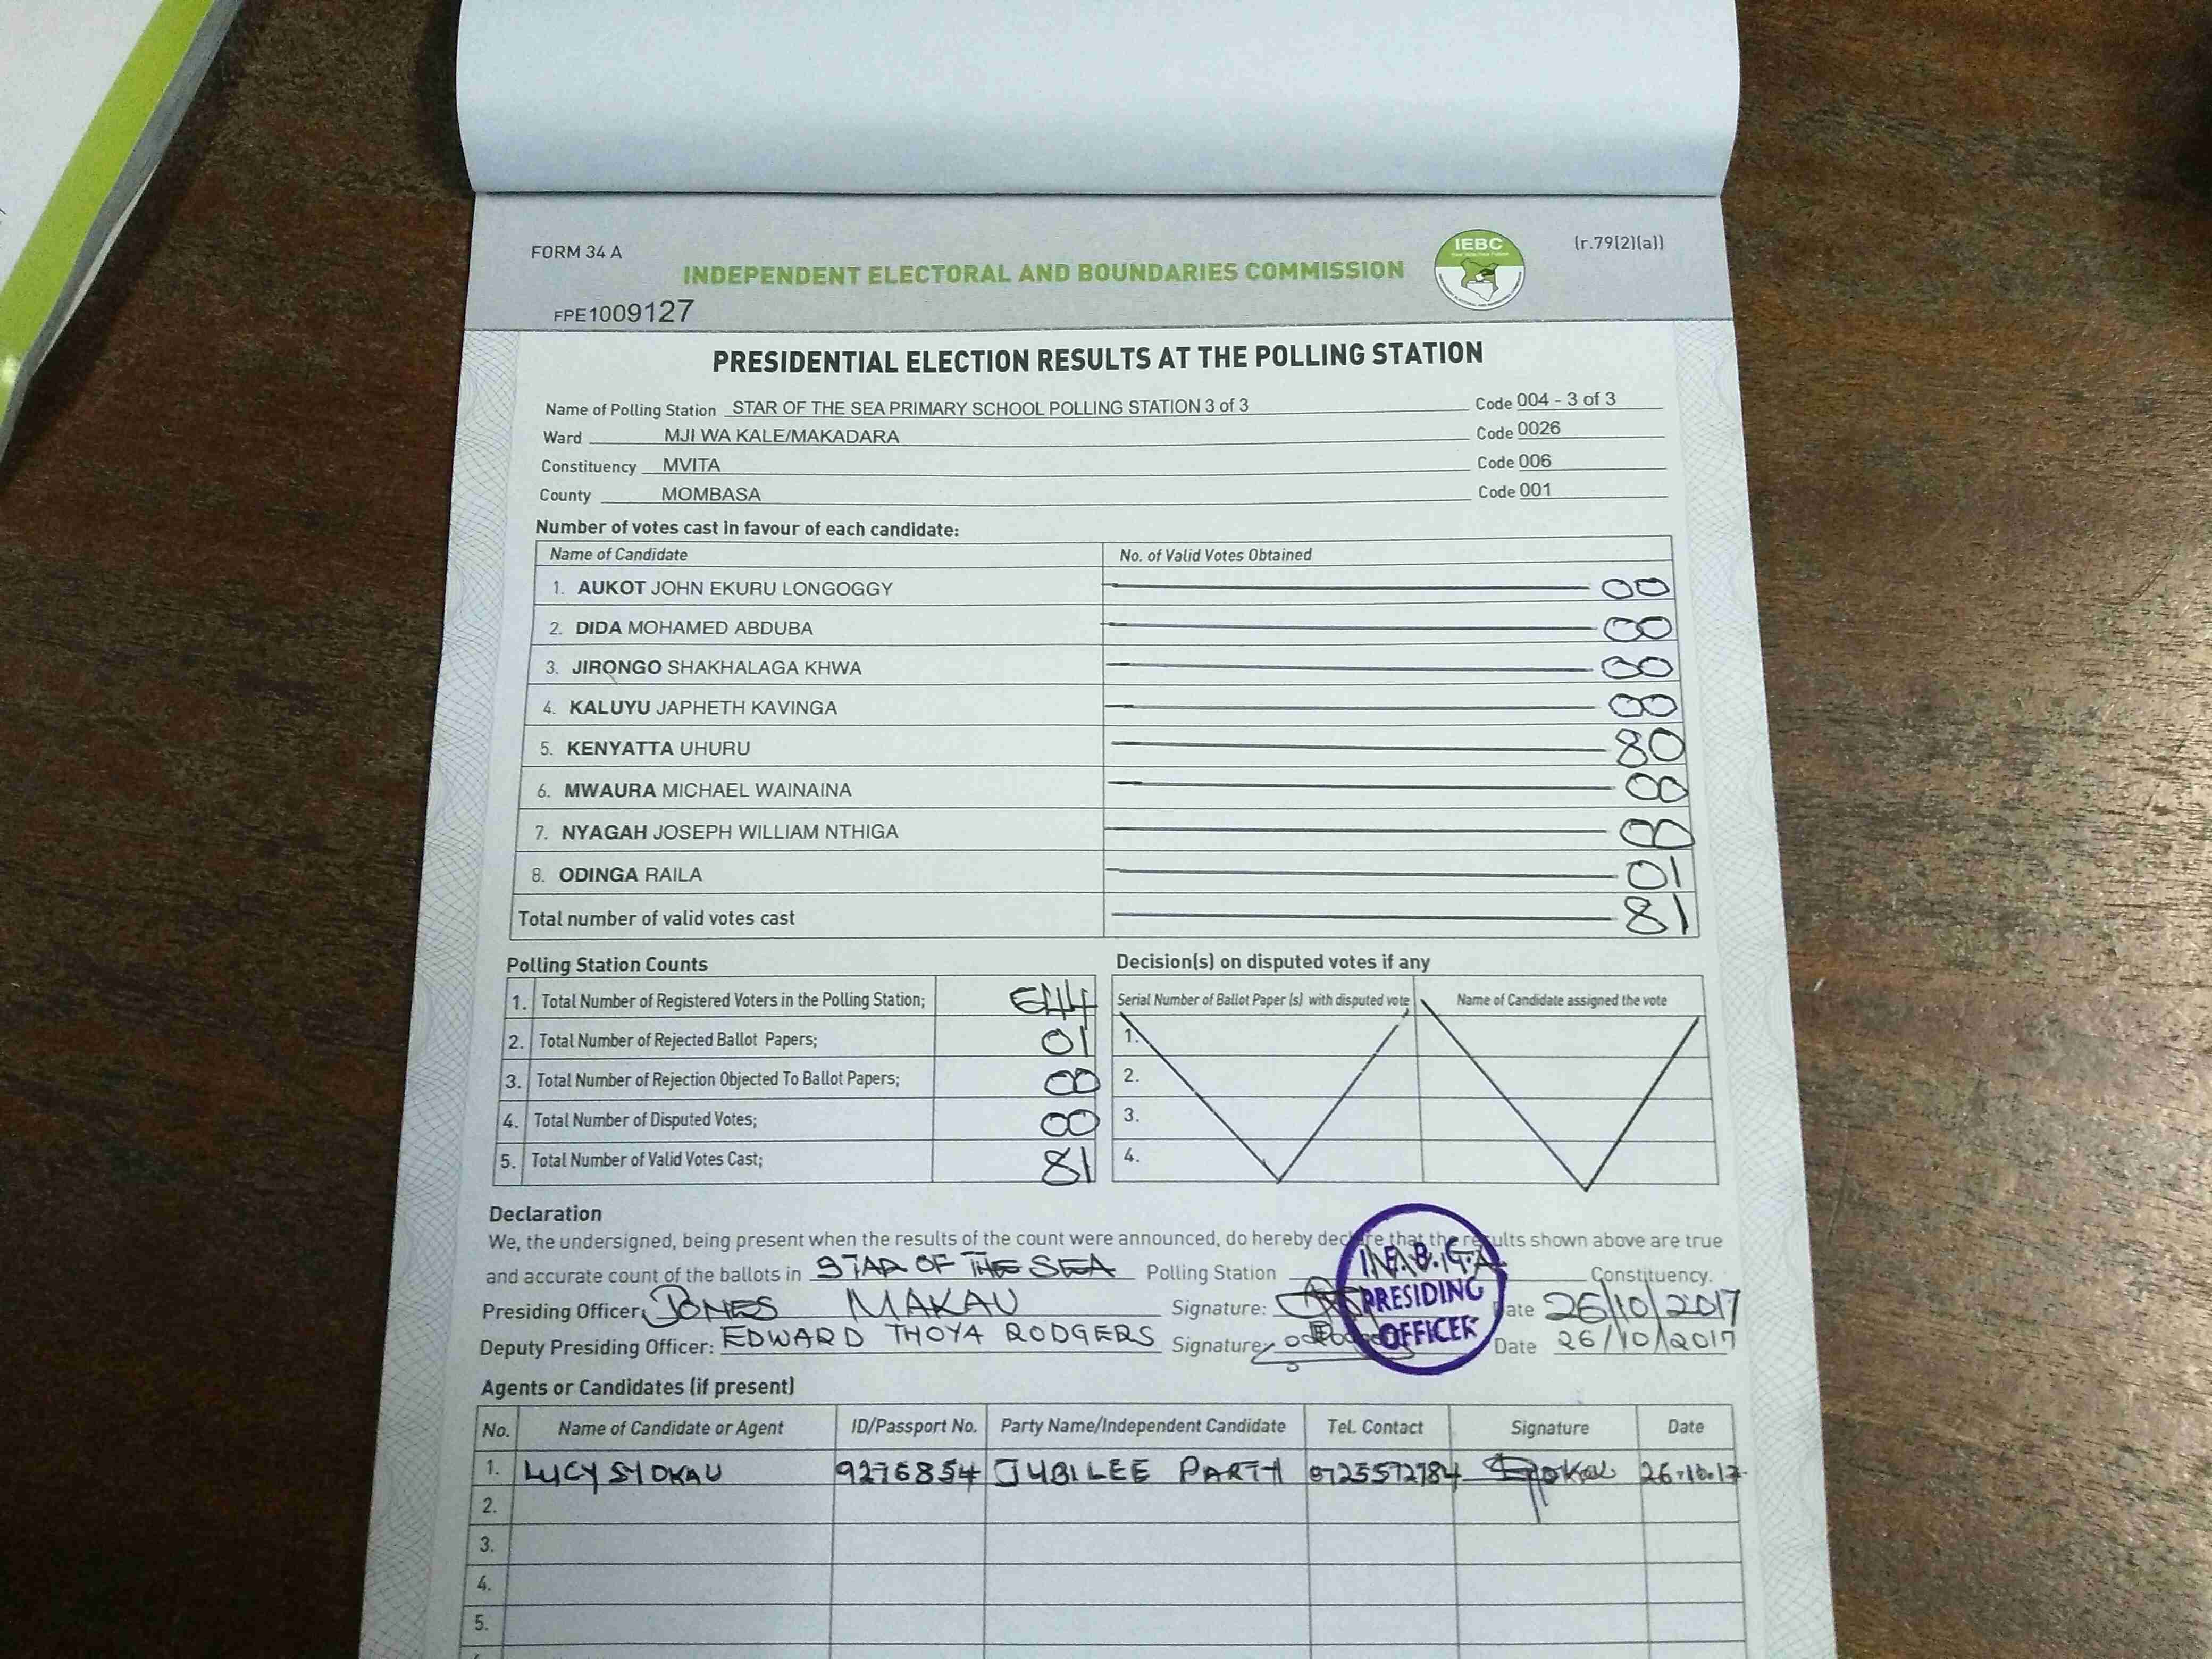 FORM 34 A
IEBC
(r.79(2)(a))
INDEPENDENT ELECTORAL AND BOUNDARIES COMMISSION
FPE1009127
PRESIDENTIAL ELECTION RESULTS AT THE POLLING STATION
Name of Polling Station STAR OF THE SEA PRIMARY SCHOOL POLLING STATION 3 of 3 Code 004 - 3 of 3
Ward MJI WA KALE/MAKADARA Code 0026
Constituency MVITA Code 006
County MOMBASA Code 001
Number of votes cast in favour of each candidate:
Name of Candidate No. of Valid Votes Obtained
1. AUKOT JOHN EKURU LONGOGGY 00
2. DIDA MOHAMED ABDUBA 00
3. JIRONGO SHAKHALAGA KHWA 00
4. KALUYU JAPHETH KAVINGA 00
5. KENYATTA UHURU 80
6. MWAURA MICHAEL WAINAINA 00
7. NYAGAH JOSEPH WILLIAM NTHIGA 00
8. ODINGA RAILA 01
Total number of valid votes cast 81
Polling Station Counts
1. Total Number of Registered Voters in the Polling Station;
2. Total Number of Rejected Ballot Papers; 01
3. Total Number of Rejection Objected To Ballot Papers; 00
4. Total Number of Disputed Votes; 00
5. Total Number of Valid Votes Cast; 81
Decision(s) on disputed votes if any
Serial Number of Ballot Paper (s) with disputed vote Name of Candidate assigned the vote
1.
2.
3.
4.
Declaration
We, the undersigned, being present when the results of the count were announced, do hereby declare that the results shown above are true
and accurate count of the ballots in STAR OF THE SEA Polling Station Constituency.
Presiding Officer: JONES MAKAU Signature: Date 26/10/2017
Deputy Presiding Officer: EDWARD THOYA RODGERS Signature: Date 26/10/2017
I.E.B.C.
PRESIDING
OFFICER
Agents or Candidates (if present)
No. Name of Candidate or Agent ID/Passport No. Party Name/Independent Candidate Tel. Contact Signature Date
1. LUCY SYOKAU 9276854 JUBILEE PARTY 0725572784 26.10.17
2.
3.
4.
5.